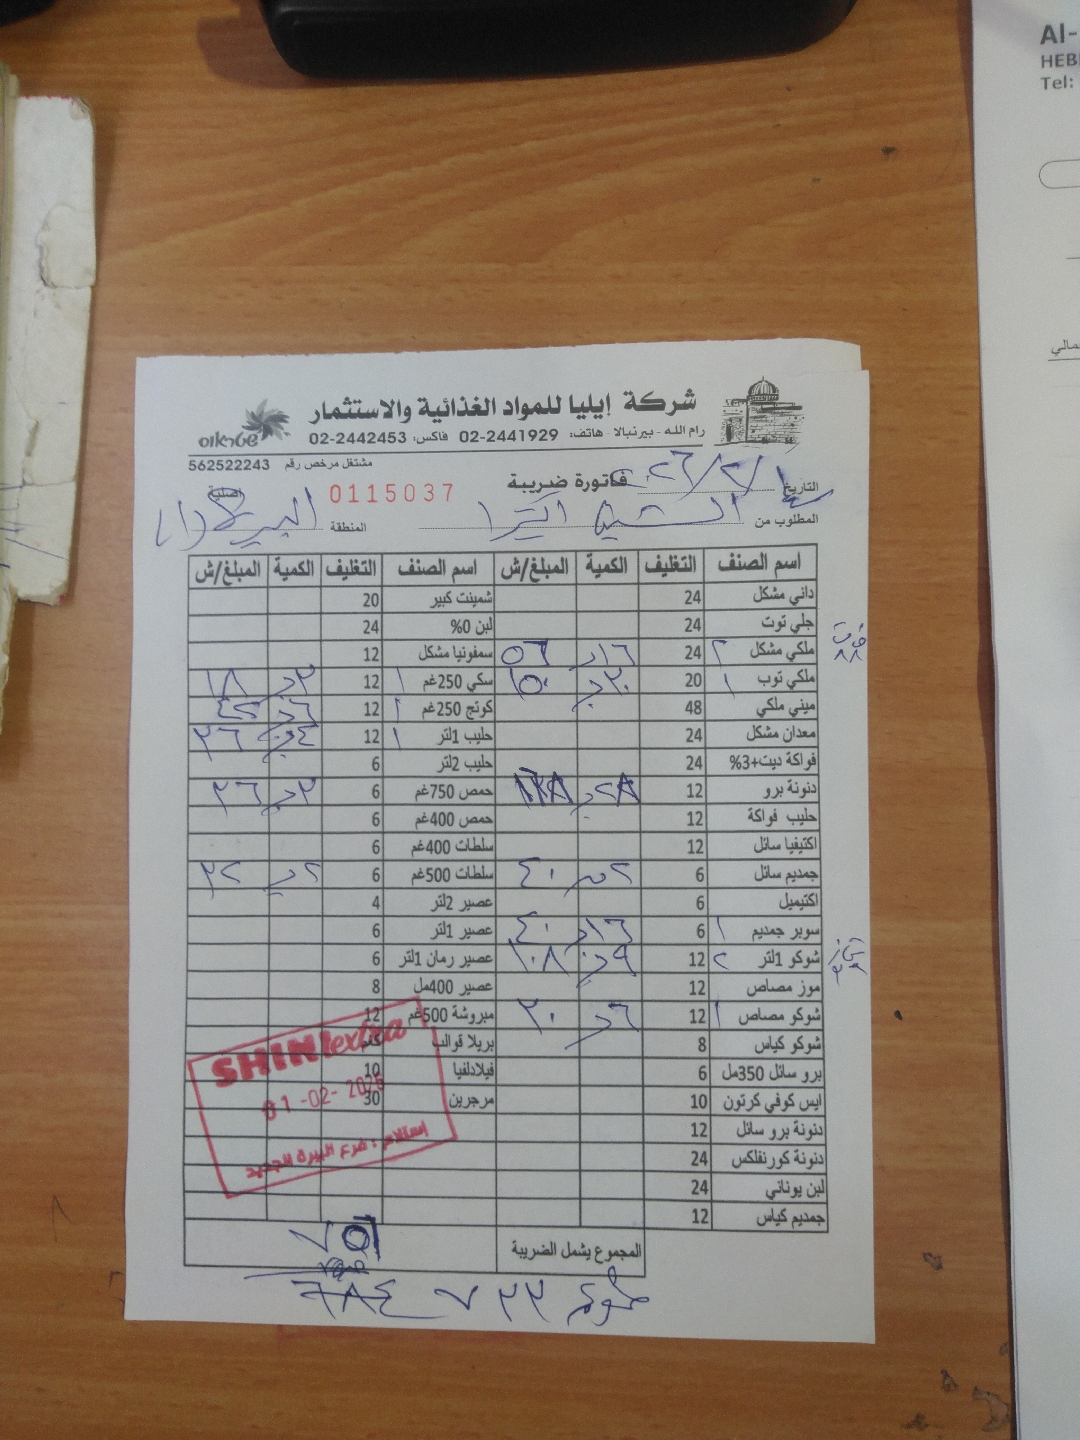 Al-
HEB
Tel:
شركة إيليا للمواد الغذائية والاستثمار
رام الله - بيرنبالا - هاتف: 02-2441929 فاكس: 02-2442453
شتراوس
مشتغل مرخص رقم 562522243
فاتورة ضريبة
التاريخ
0115037
أصلية
المطلوب من
المنطقة
اسم الصنف التغليف الكمية المبلغ/ش اسم الصنف التغليف الكمية المبلغ/ش
داني مشكل 24 شمينت كبير 20
جلي توت 24 لبن 0% 24
ملكي مشكل ٢ 24 ١٦ ٥٦ سمفونيا مشكل 12
ملكي توب ١ 20 ٣٠ ١٥٠ سكي 250غم ١ 12 ٣ ١٨
ميني ملكي 48 كوتج 250غم 12 ٦
معدان مشكل 24 حليب 1لتر ١ 12 ٣٦
فواكة ديت+3% 24 حليب 2لتر 6
دنونة برو 12 ٢٨ حمص 750غم 6 ٣ ٣٦
حليب فواكة 12 حمص 400غم 6
اكتيفيا سائل 12 سلطات 400غم 6
جمديم سائل 6 ٢ ٤٠ سلطات 500غم 6 ٢ ٣٢
اكتيميل 6 عصير 2لتر 4
سوبر جمديم ١ 6 ١٦ ٤٠ عصير 1لتر 6
شوكو 1لتر ٢ 12 ٩ ١٠٨ عصير رمان 1لتر 6
موز مصاص 12 عصير 400مل 8
شوكو مصاص ١ 12 ٦ ٣٠ مبروشة 500غم 12
شوكو كياس 8 بريلا قوالب كغم
برو سائل 350مل 6 فيلادلفيا 10
ايس كوفي كرتون 10 مرجرين 30
دنونة برو سائل 12
دنونة كورنفلكس 24
لبن يوناني 24
جمديم كياس 12
SHINI extra
01-02-2026
إستلام: فرع البيرة الجديد
المجموع يشمل الضريبة ٧٥٦
٧٣٣ ٦٨٤